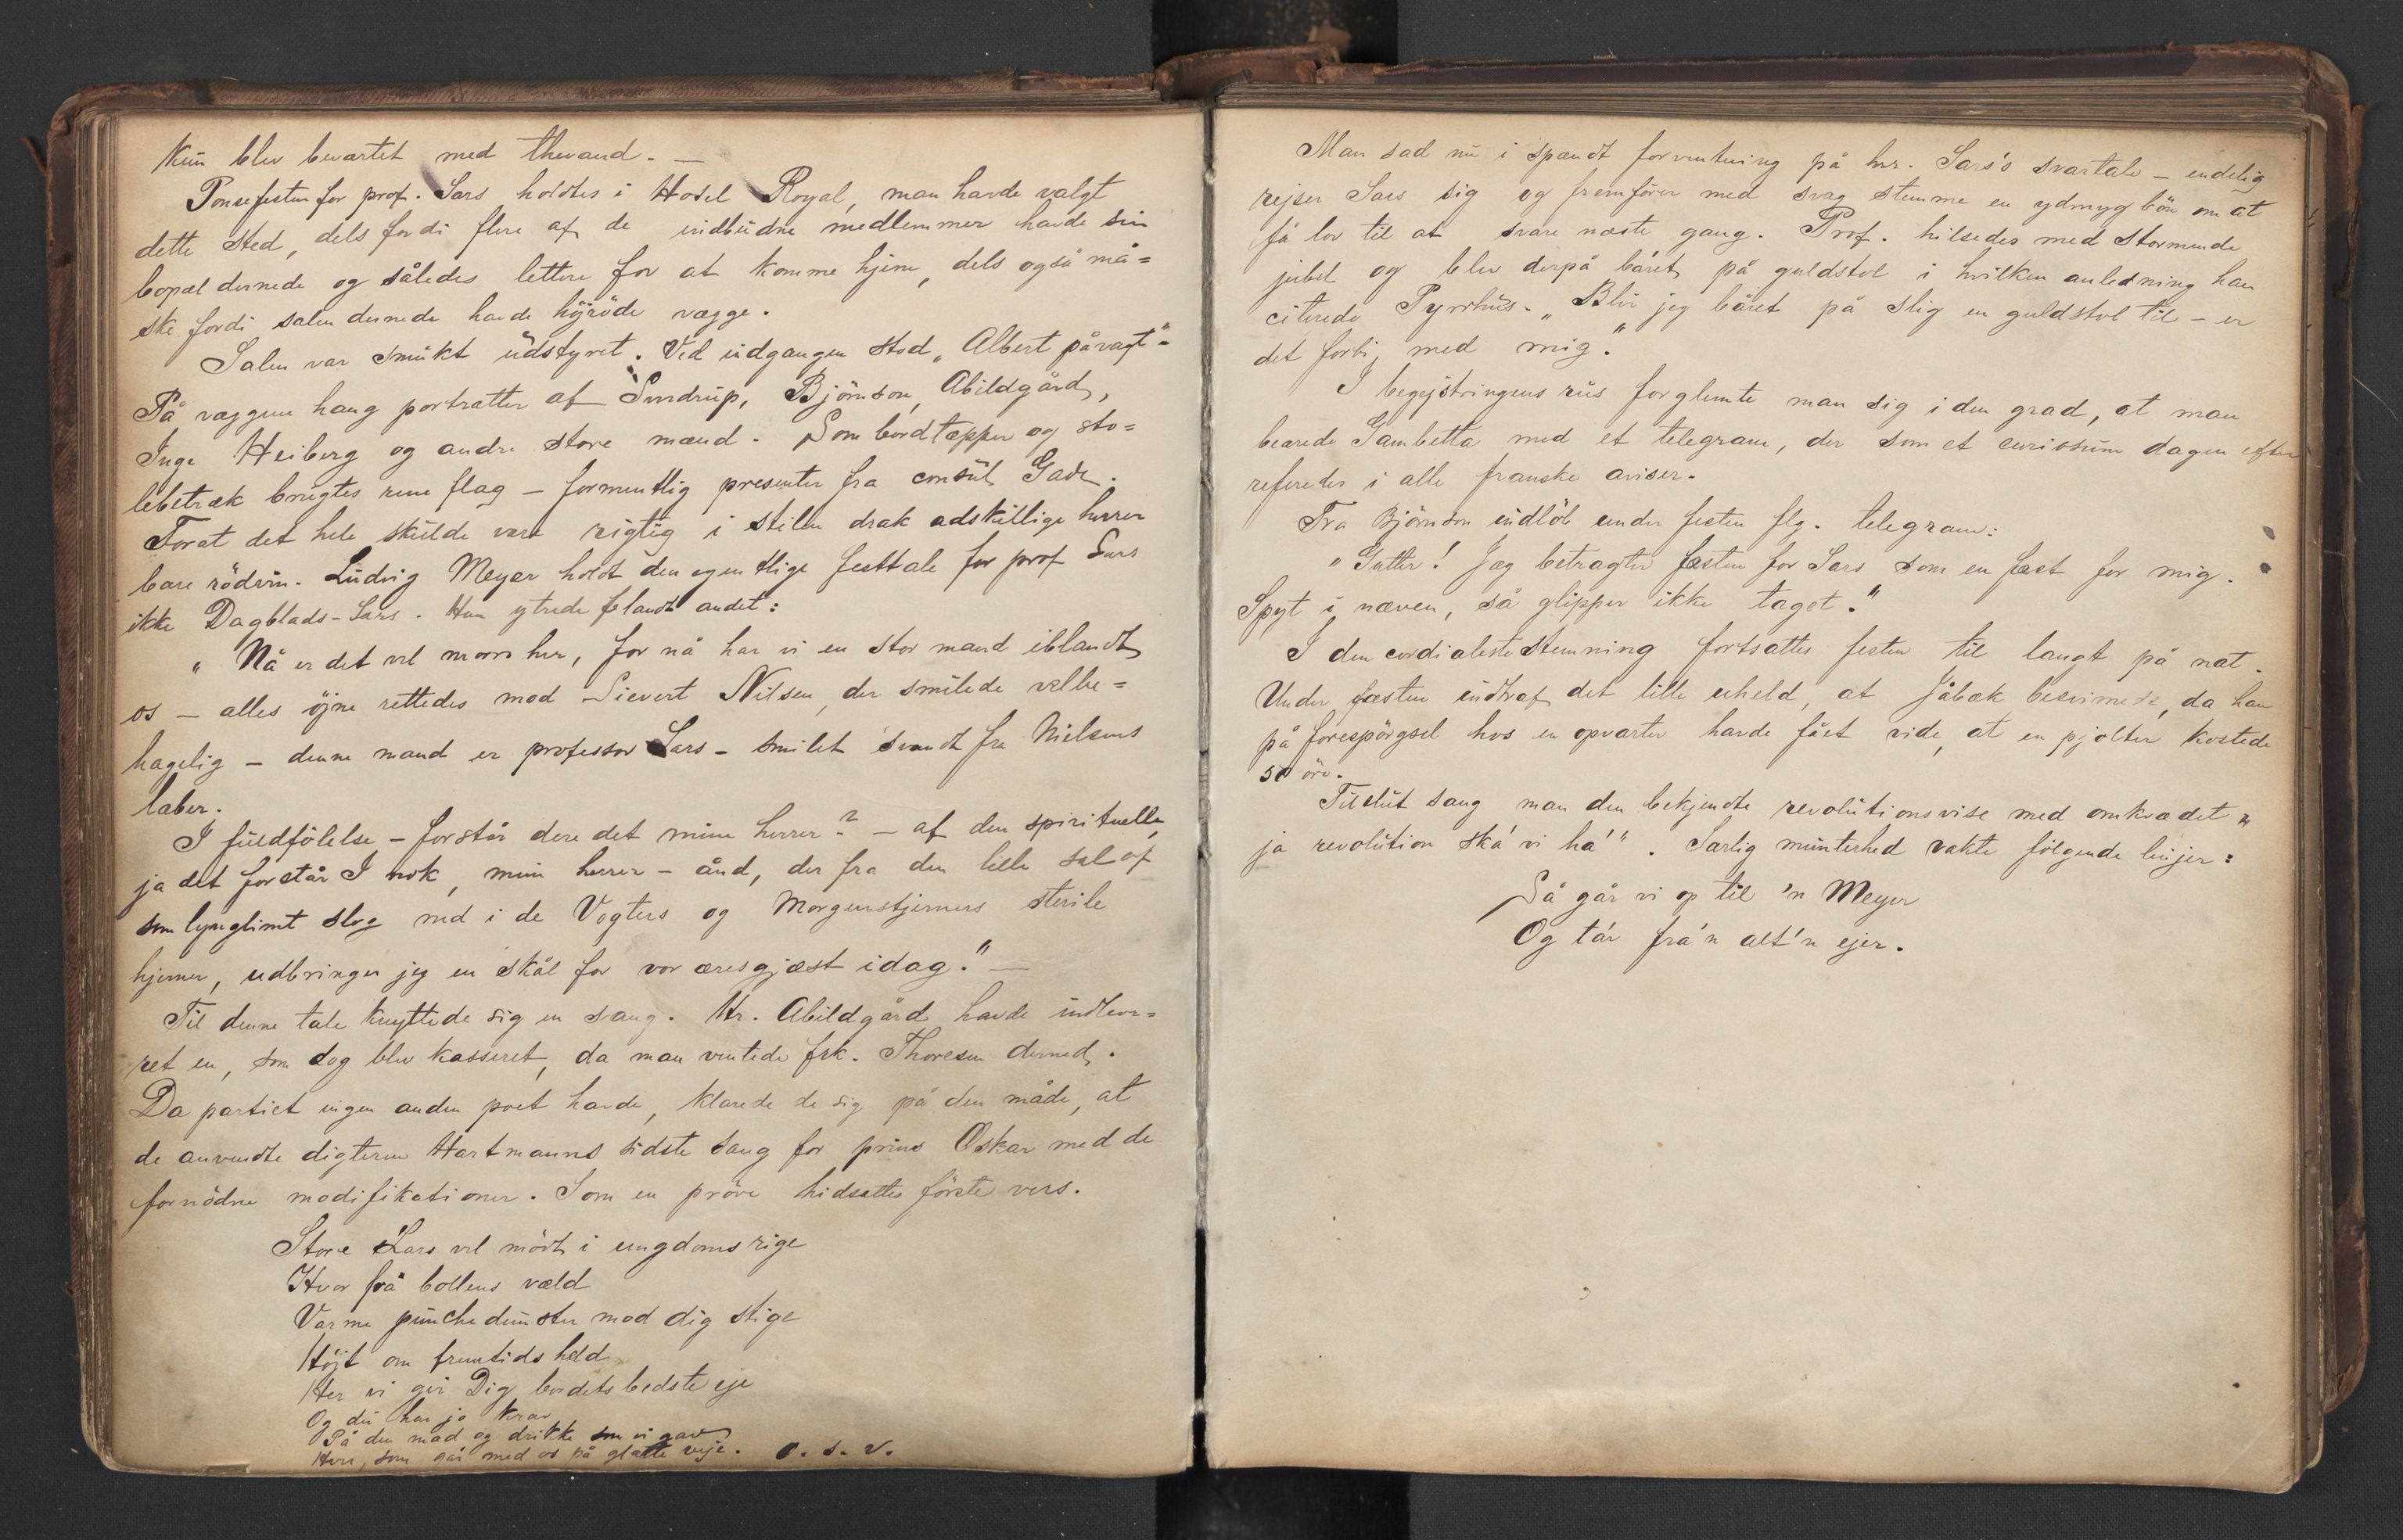 kun blev bevartet med thevand. —
Ponsefesten for prof. Sars holdtes i Hotel Royal, man havde valgt
dette sted, dels fordi flere af de indbudne medlemmer havde sin
bopæl dernede og således lettere for at komme hjem, dels også må=
ske fordi salen dernede havde højröde vægge.
Salen var smukt udstyret. Ved udgangen stod „Albert på vagt".
På væggene hang portrætter af Sverdrup, Björnson, Abildgård,
Inge Heiberg og andre store mænd. Som bordtæpper og sto=
lebetræk brugtes rene flag — formentlig presenter fra consul Gade.
Forat det hele skulde være rigtig i stilen drak adskillige herrer
bare rödvin. Ludvig Meyer holdt den egentlige festtale for prof Sars
ikke Dagblads-Sars. Han ytrede blandt andet:
„Nå er det vel morro her, for nå har vi en stor mand iblandt
os — alles öjne rettedes mod Sievert Nilsen, der smilede velbe=
hagelig — denne mand er professor Sars — smilet svandt fra Nielsens
læber.
I fuldfölelse — forstår dere det mine herrer? — af den spirituelle,
ja det forstår I nok, mine herrer — ånd, der fra den lille sal op
som lynglimt slog ned i de Vogters og Morgenstjerners sterile
hjerner, udbringer jeg en skål for vor æresgjæst idag." —
Til denne tale knyttede sig en sang. Hr. Abildgård havde indleve=
ret en, som dog blev kasseret, da man ventede frk. Thoresen derned.
Da partiet ingen anden poet havde, klarede de sig på den måde, at
de anvendte digteren Hartmanns sidste sang for prins Oskar med de
fornödne modifikationer. Som en pröve hidsættes förste vers.
Store Sars vel mödt i ungdoms rige
Hvor frå bollens væld
Varme punchedunster mod dig stige
Höjt om fremtids held
Her vi gir Dig bordets bedste eje
Og du har jo krav
På den mad og drikke som vi gav
Hver, som går med os på glatte veje. o. s. v.
Man sad nu i spændt forventning på hr. Sars's svartale — endelig
rejser Sars sig og fremförer med svag stemme en ydmyg bön om at
få lov til at svare næste gang. Prof. hilsedes med stormende
jubel og blev derpå båret på guldstol i hvilken anledning han
citerede Pyrrhus. „Blir jeg båret på slig en guldstol til — er
det forbi med mig."
I begejstringens rus forglemte man sig i den grad, at man
beærede Gambetta med et telegram, der som et curiosum dagen efter
referedes i alle franske aviser.
Fra Björnson indlöb under festen flg. telegram:
„Gutter! Jæg betragter fæsten for Sars som en fæst for mig.
Spyt i næven, så glipper ikke taget."
I den cordialeste stemning fortsattes festen til langt på nat.
Under fæsten indtraf det lille uheld, at Jåbæk besvimede, da han
på forespörgsel hos en opvarter havde fået vide, at en pjolter kostede
50 öre.
Tilslut sang man den bekjendte revolutionsvise med omkvædet „
ja revolution ska' vi ha'". Særlig munterhed vakte fölgende linjer:
Så går vi op til 'n Meyer
Og ta'r fra'n alt'n ejer.